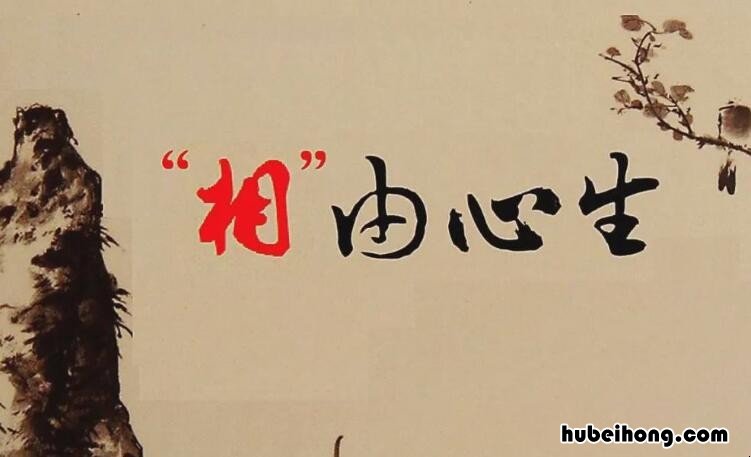 “相”由心生
hubeihong.com